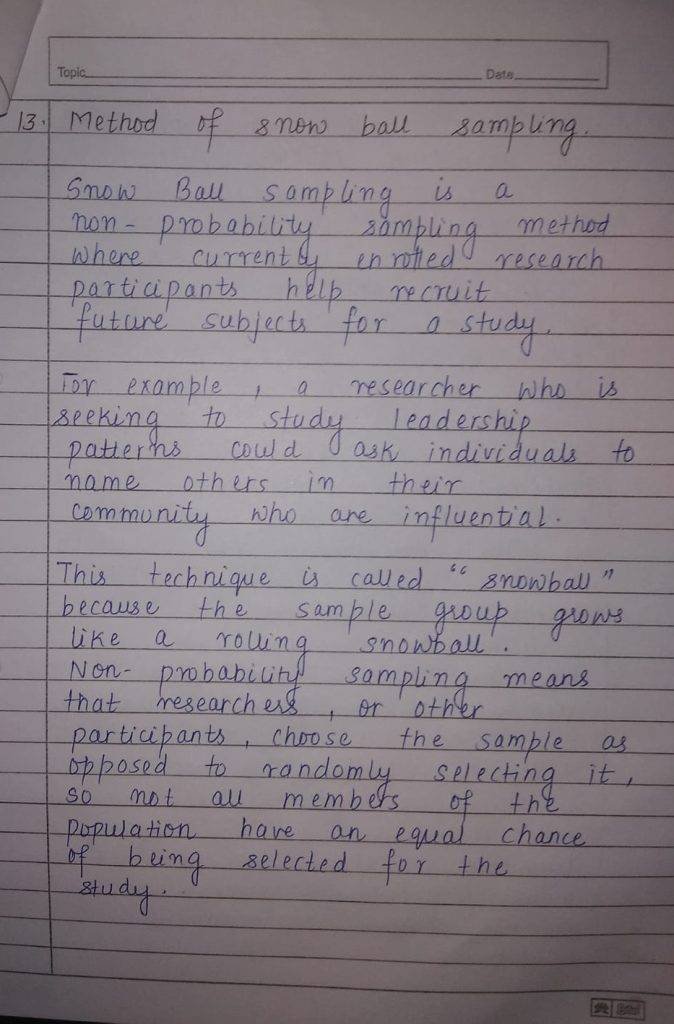 Topic Date
13. Method of snow ball sampling.
Snow Ball sampling is a
non- probability sampling method
where currently enrolled research
participants help recruit
future subjects for a study.
For example, a researcher who is
seeking to study leadership
patterns could ask individuals to
name others in their
community who are influential.
This technique is called "snowball"
because the sample group grows
like a rolling snowball.
Non- probability sampling means
that researchers, or other
participants, choose the sample as
opposed to randomly selecting it,
so not all members of the
population have an equal chance
of being selected for the
study.